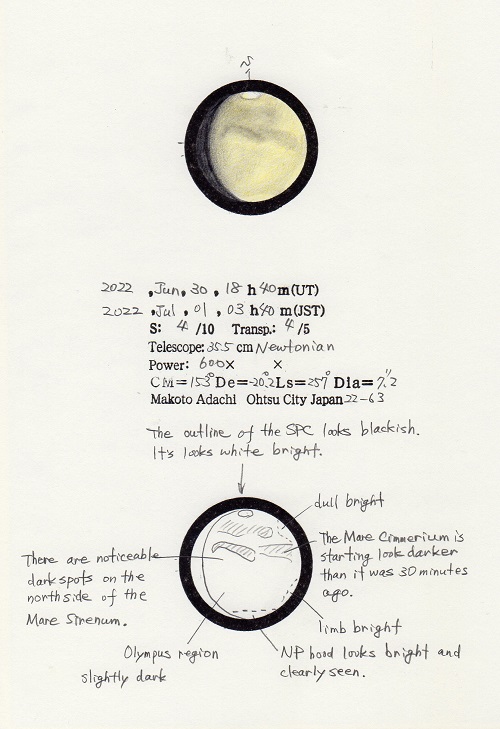 S
2022 , Jun, 30 , 18 h 40 m(UT)
2022 , Jul , 01 , 03 h 40 m(JST)
S: 4 /10 Transp.: 4 /5
Telescope: 35.5 cm Newtonian
Power: 600× ×
CM=153° De=-20.2° Ls=257° Dia=7.″2
Makoto Adachi Ohtsu City Japan 22-63
The outline of the SPC looks blackish.
It's looks white bright.
dull bright
The Mare Cimmerium is
starting look darker
than it was 30 minutes
ago.
There are noticeable
dark spots on the
north side of the
Mare Sirenum.
limb bright
Olympus region
slightly dark
NP hood looks bright and
clearly seen.